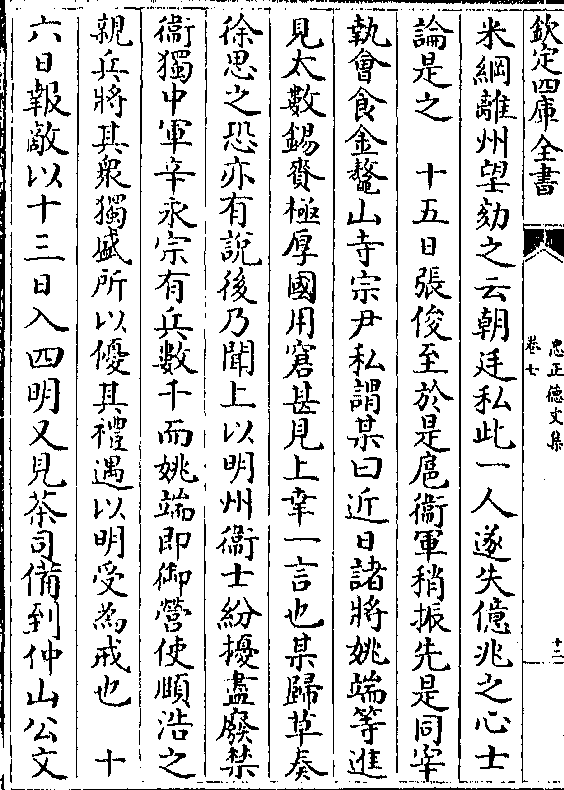 欽定四庫全書
忠正德文集
卷七
十二
米綱離州望劾之云朝廷私此一人遂失億兆之心士
論是之　十五日張俊至於是扈衞軍稍振先是同宰
執會食金鼇山寺宗尹私謂某曰近日諸將姚端等進
見太數錫賚極厚國用窘甚見上幸一言也某歸草奏
徐思之恐亦有說後乃聞上以明州衞士紛擾盡廢禁
衞獨中軍辛永宗有兵數千而姚端即御營使頤浩之
親兵將其衆獨盛所以優其禮遇以明受為戒也　十
六日報敵以十三日入四明又見茶司備到仲山公文